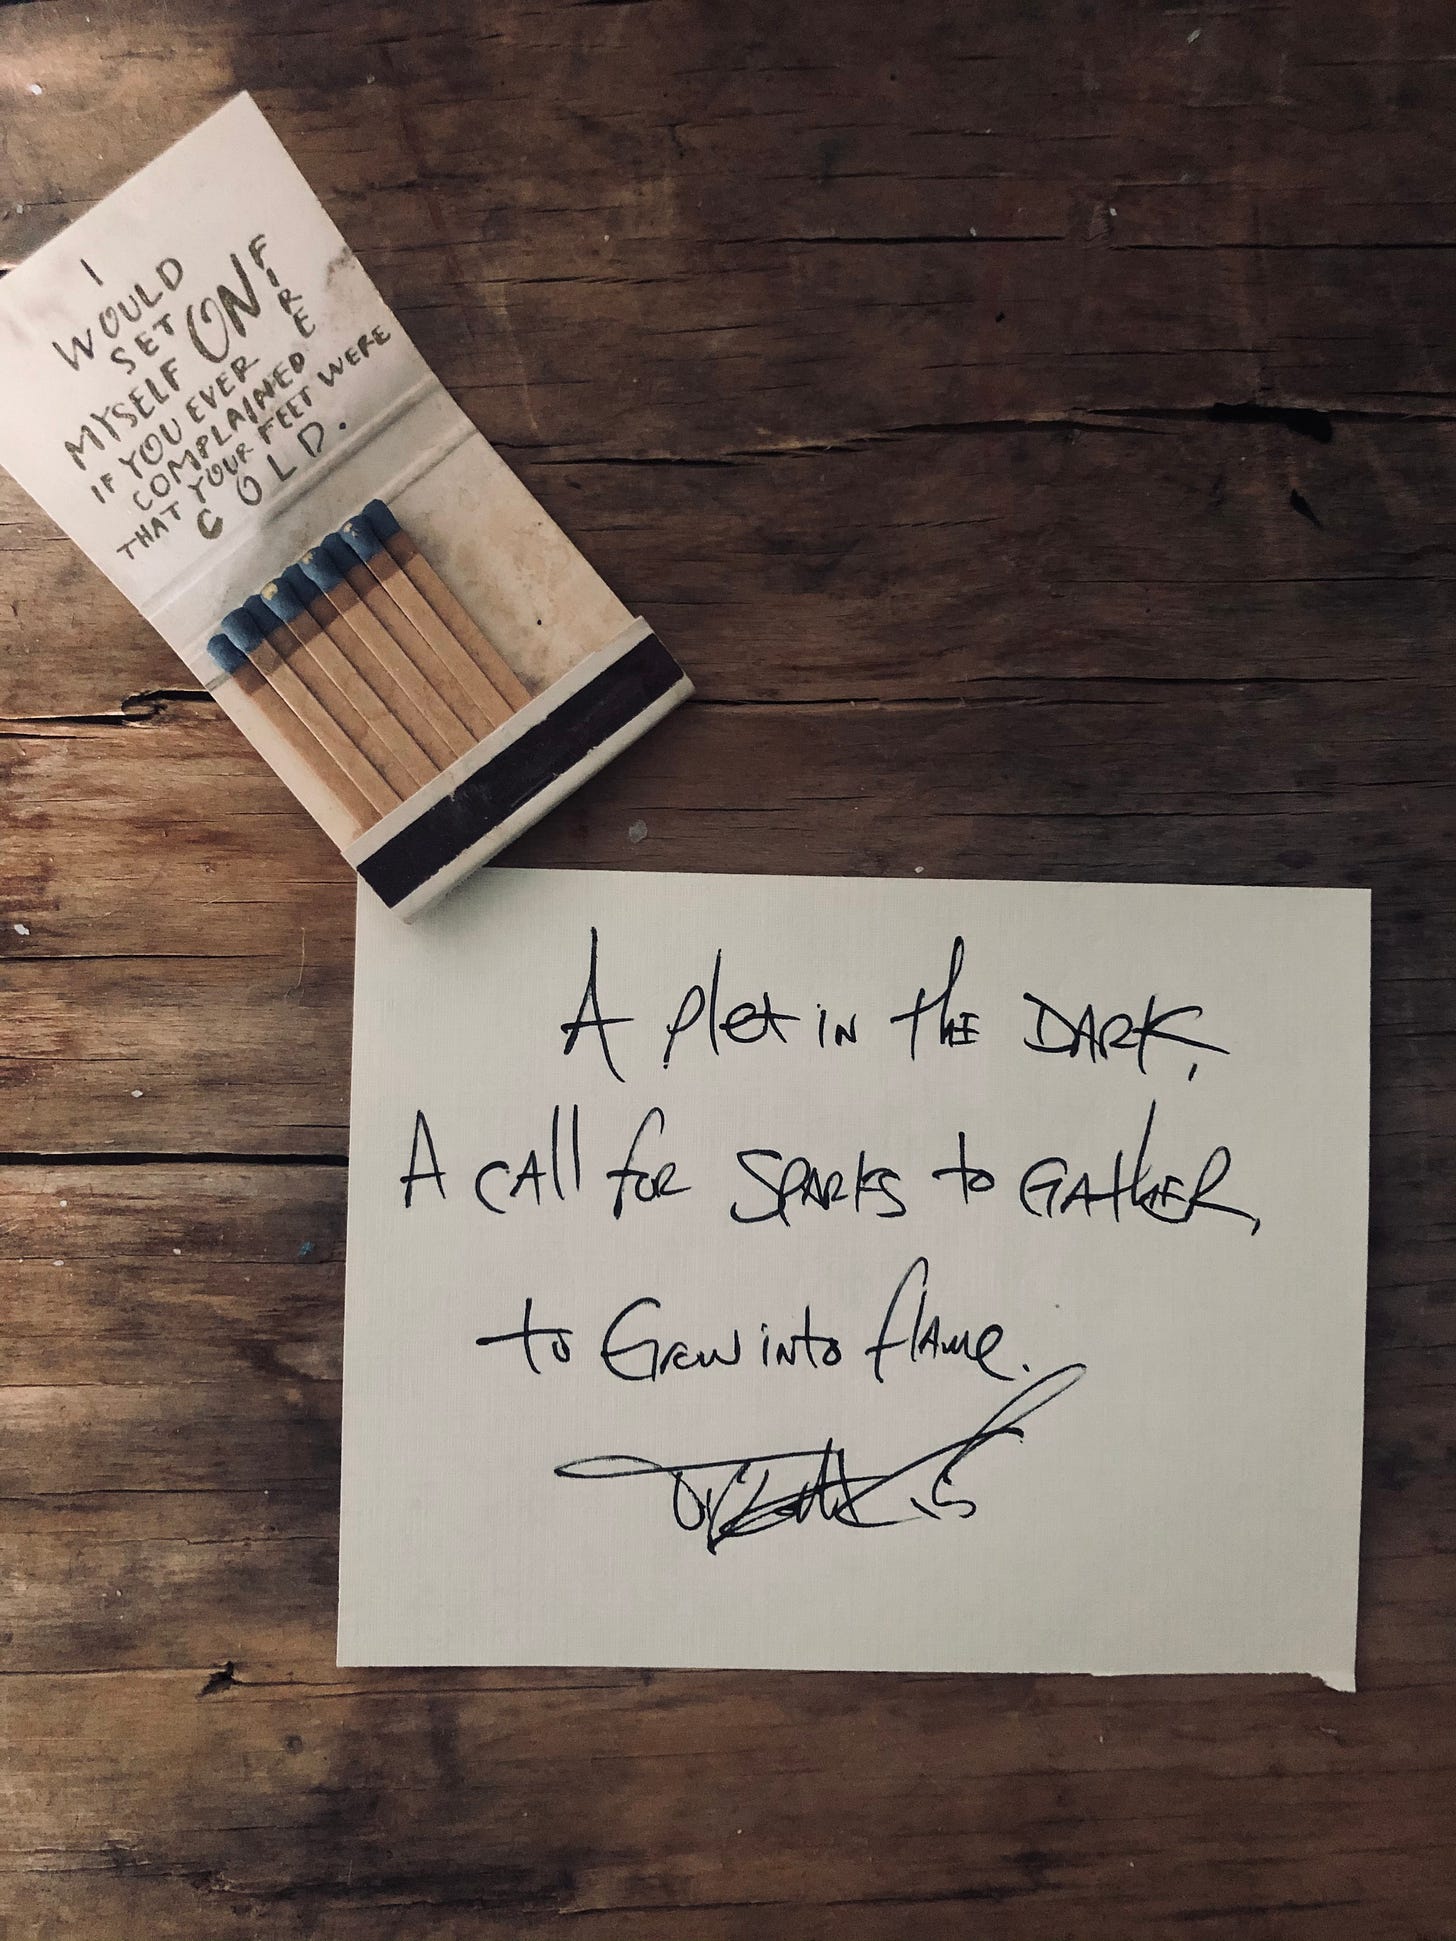 I
WOULD
SET ON FIRE
MYSELF
IF YOU EVER
COMPLAINED
THAT YOUR FEET WERE
COLD.
A plot in the DARK,
A call for SPARKS to GATHER,
to Grow into flame.